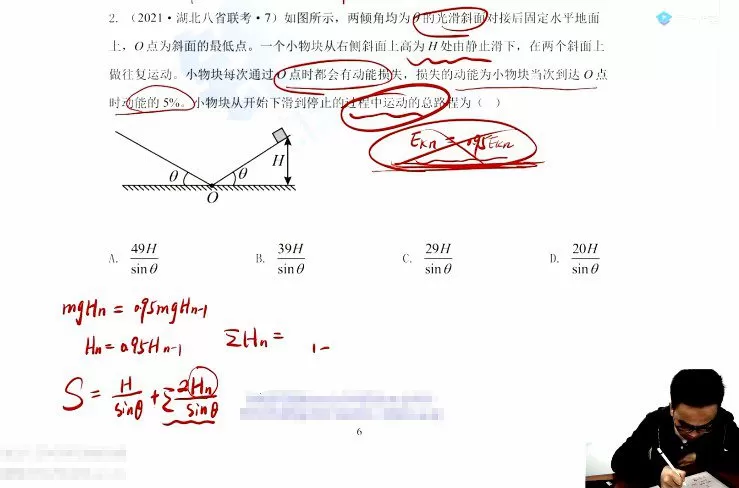 2. （2021·湖北八省联考·7）如图所示，两倾角均为θ的光滑斜面对接后固定水平地面
上，O点为斜面的最低点。一个小物块从右侧斜面上高为H处由静止滑下，在两个斜面上
做往复运动。小物块每次通过O点时都会有动能损失，损失的动能为小物块当次到达O点
时动能的5%。小物块从开始下滑到停止的过程中运动的总路程为（ ）
Eₖₙ = 0.95Eₖₙ
θ θ H
O
A. 49H/sinθ B. 39H/sinθ C. 29H/sinθ D. 20H/sinθ
mgHn = 0.95mgHn-1
Hn = 0.95Hn-1 ΣHn = 1-
S = H/sinθ + Σ2Hn/sinθ
6